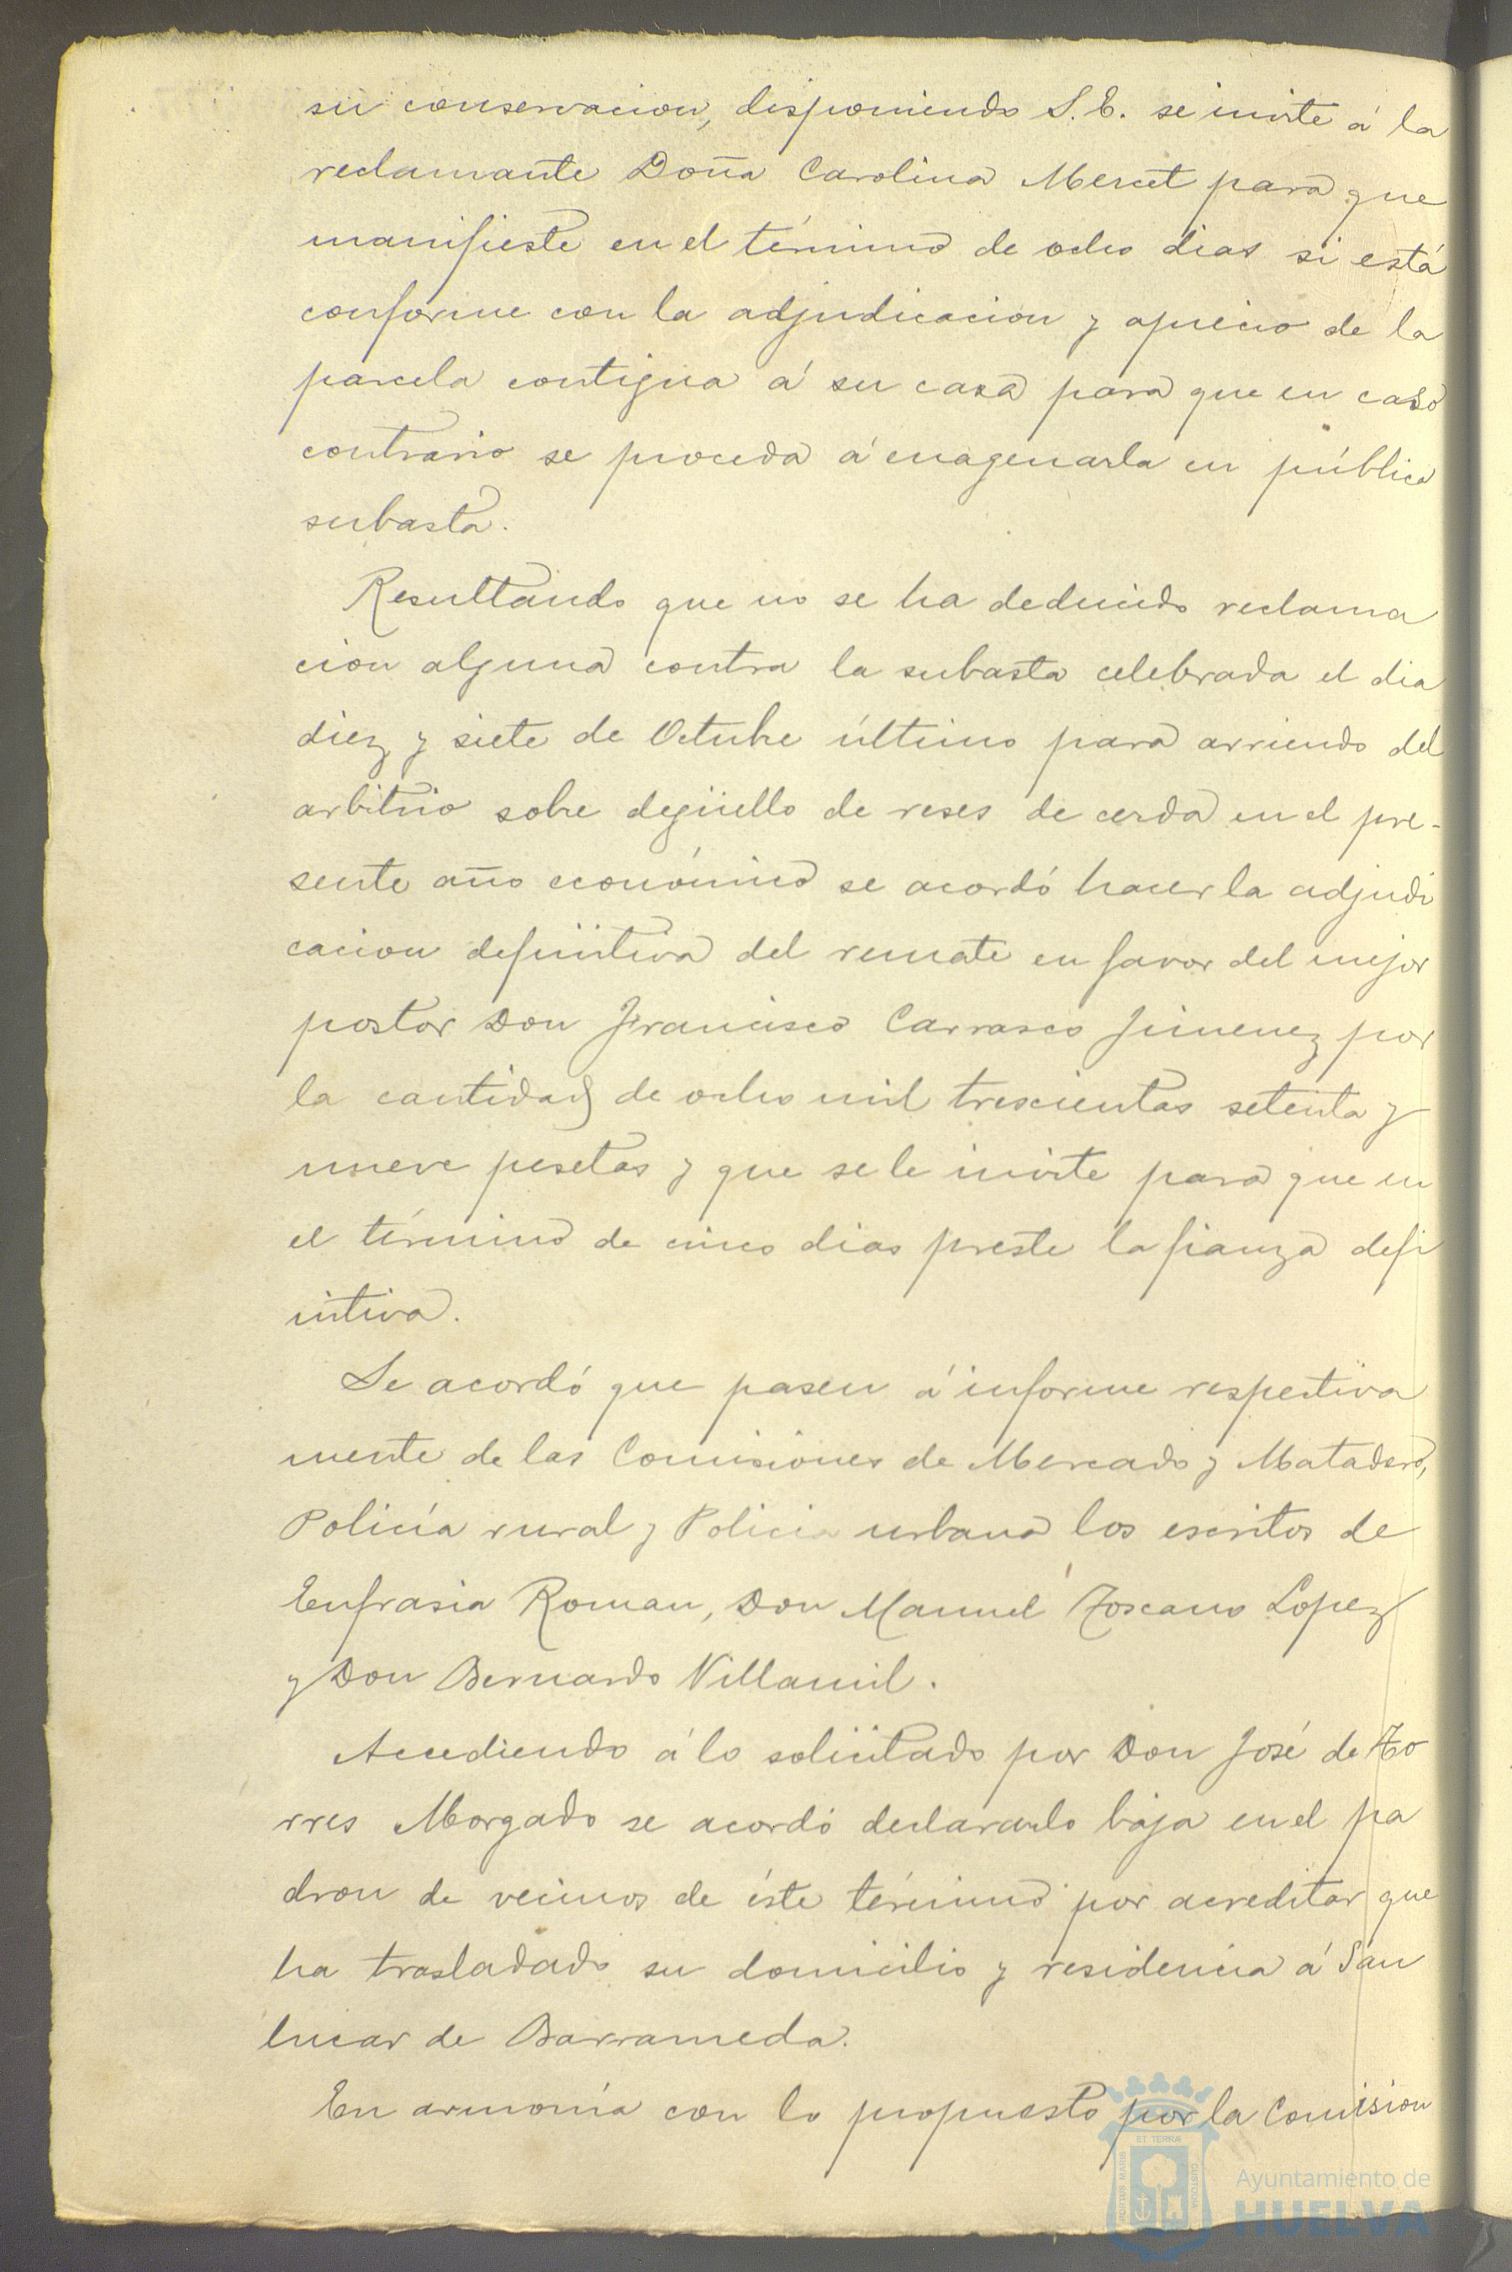 su conservacion, disponiendo S.E. se invite á la
reclamante Doña Carolina Mercet para que
manifieste en el término de ocho dias si está
conforme con la adjudicacion y aprecio de la
parcela contigua á su casa para que en caso
contrario se proceda á enagenarla en pública
subasta.
Resultando que no se ha deducido reclama
cion alguna contra la subasta celebrada el dia
diez y siete de Octubre último para arriendo del
arbitrio sobre degüello de reses de cerda en el pre-
sente año económico se acordó hacer la adjudi
cacion definitiva del remate en favor del mejor
postor Don Francisco Carrasco Jimenez por
la cantidad de ocho mil trescientas setenta y
nueve pesetas y que se le invite para que en
el término de cinco dias preste la fianza defi
nitiva.
Se acordó que pasen á informe respectiva
mente de las Comisiones de Mercado y Matadero,
Policía rural y Policia urbana los escritos de
Eufrasia Roman, Don Manuel Toscano Lopez
y Don Bernardo Villamil.
Accediendo á lo solicitado por Don José de To
rres Morgado se acordó declararlo baja en el pa
dron de vecinos de éste término por acreditar que
ha trasladado su domicilio y residencia á San
lucar de Barrameda.
En armonía con lo propuesto por la Comision
PORTUS MARIS ET TERRAE CUSTODIA
Ayuntamiento de
HUELVA